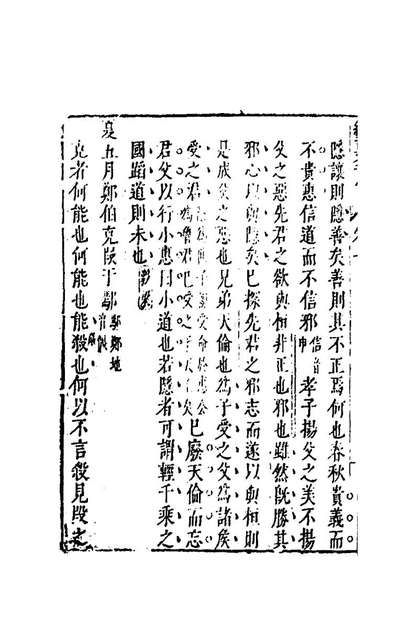 隱讓則隱善矣善則其不正焉何也春秋貴義而
不貴惠信道而不信邪信音申孝子揚父之美不揚
父之惡先君之欲與桓非正也邪也雖然既勝其
邪心以與隱矣已探先君之邪志而遂以與桓則
是成父之惡也兄弟天倫也為子受之父為諸侯
受之君已廢天倫而忘
君父以行小惠曰小道也若隱者可謂輕千乘之
國蹈道則未也
夏五月鄭伯克段于鄢鄢鄭地
克者何能也何能也能殺也何以不言殺見段之